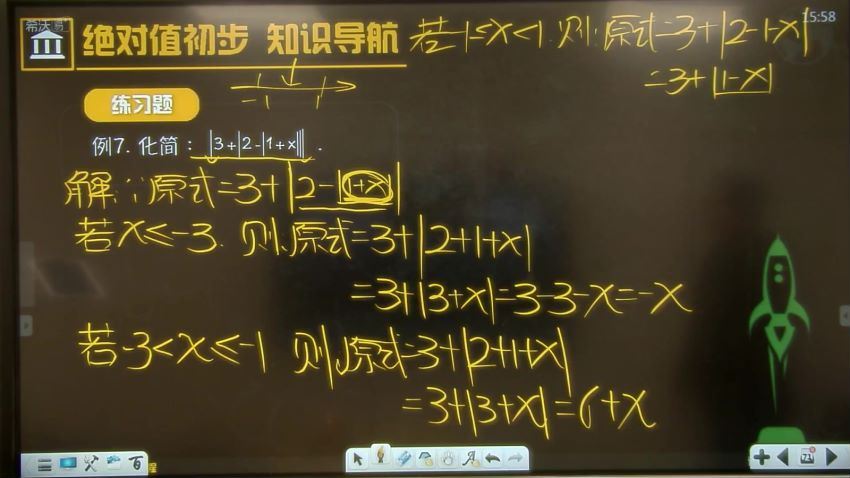 希沃
15:58
绝对值初步 知识导航
若-1<x<1.则:原式=3+|2-1-x|
=3+|1-x|
-1 1
练习题
例7. 化简：|3+|2-|1+x||| .
解:原式=3+|2-|1+x||
若x≤-3. 则原式=3+|2+1+x|
=3+|3+x|=3-3-x=-x
若-3<x≤-1 则原式=3+|2+1+x|
=3+|3+x|=6+x